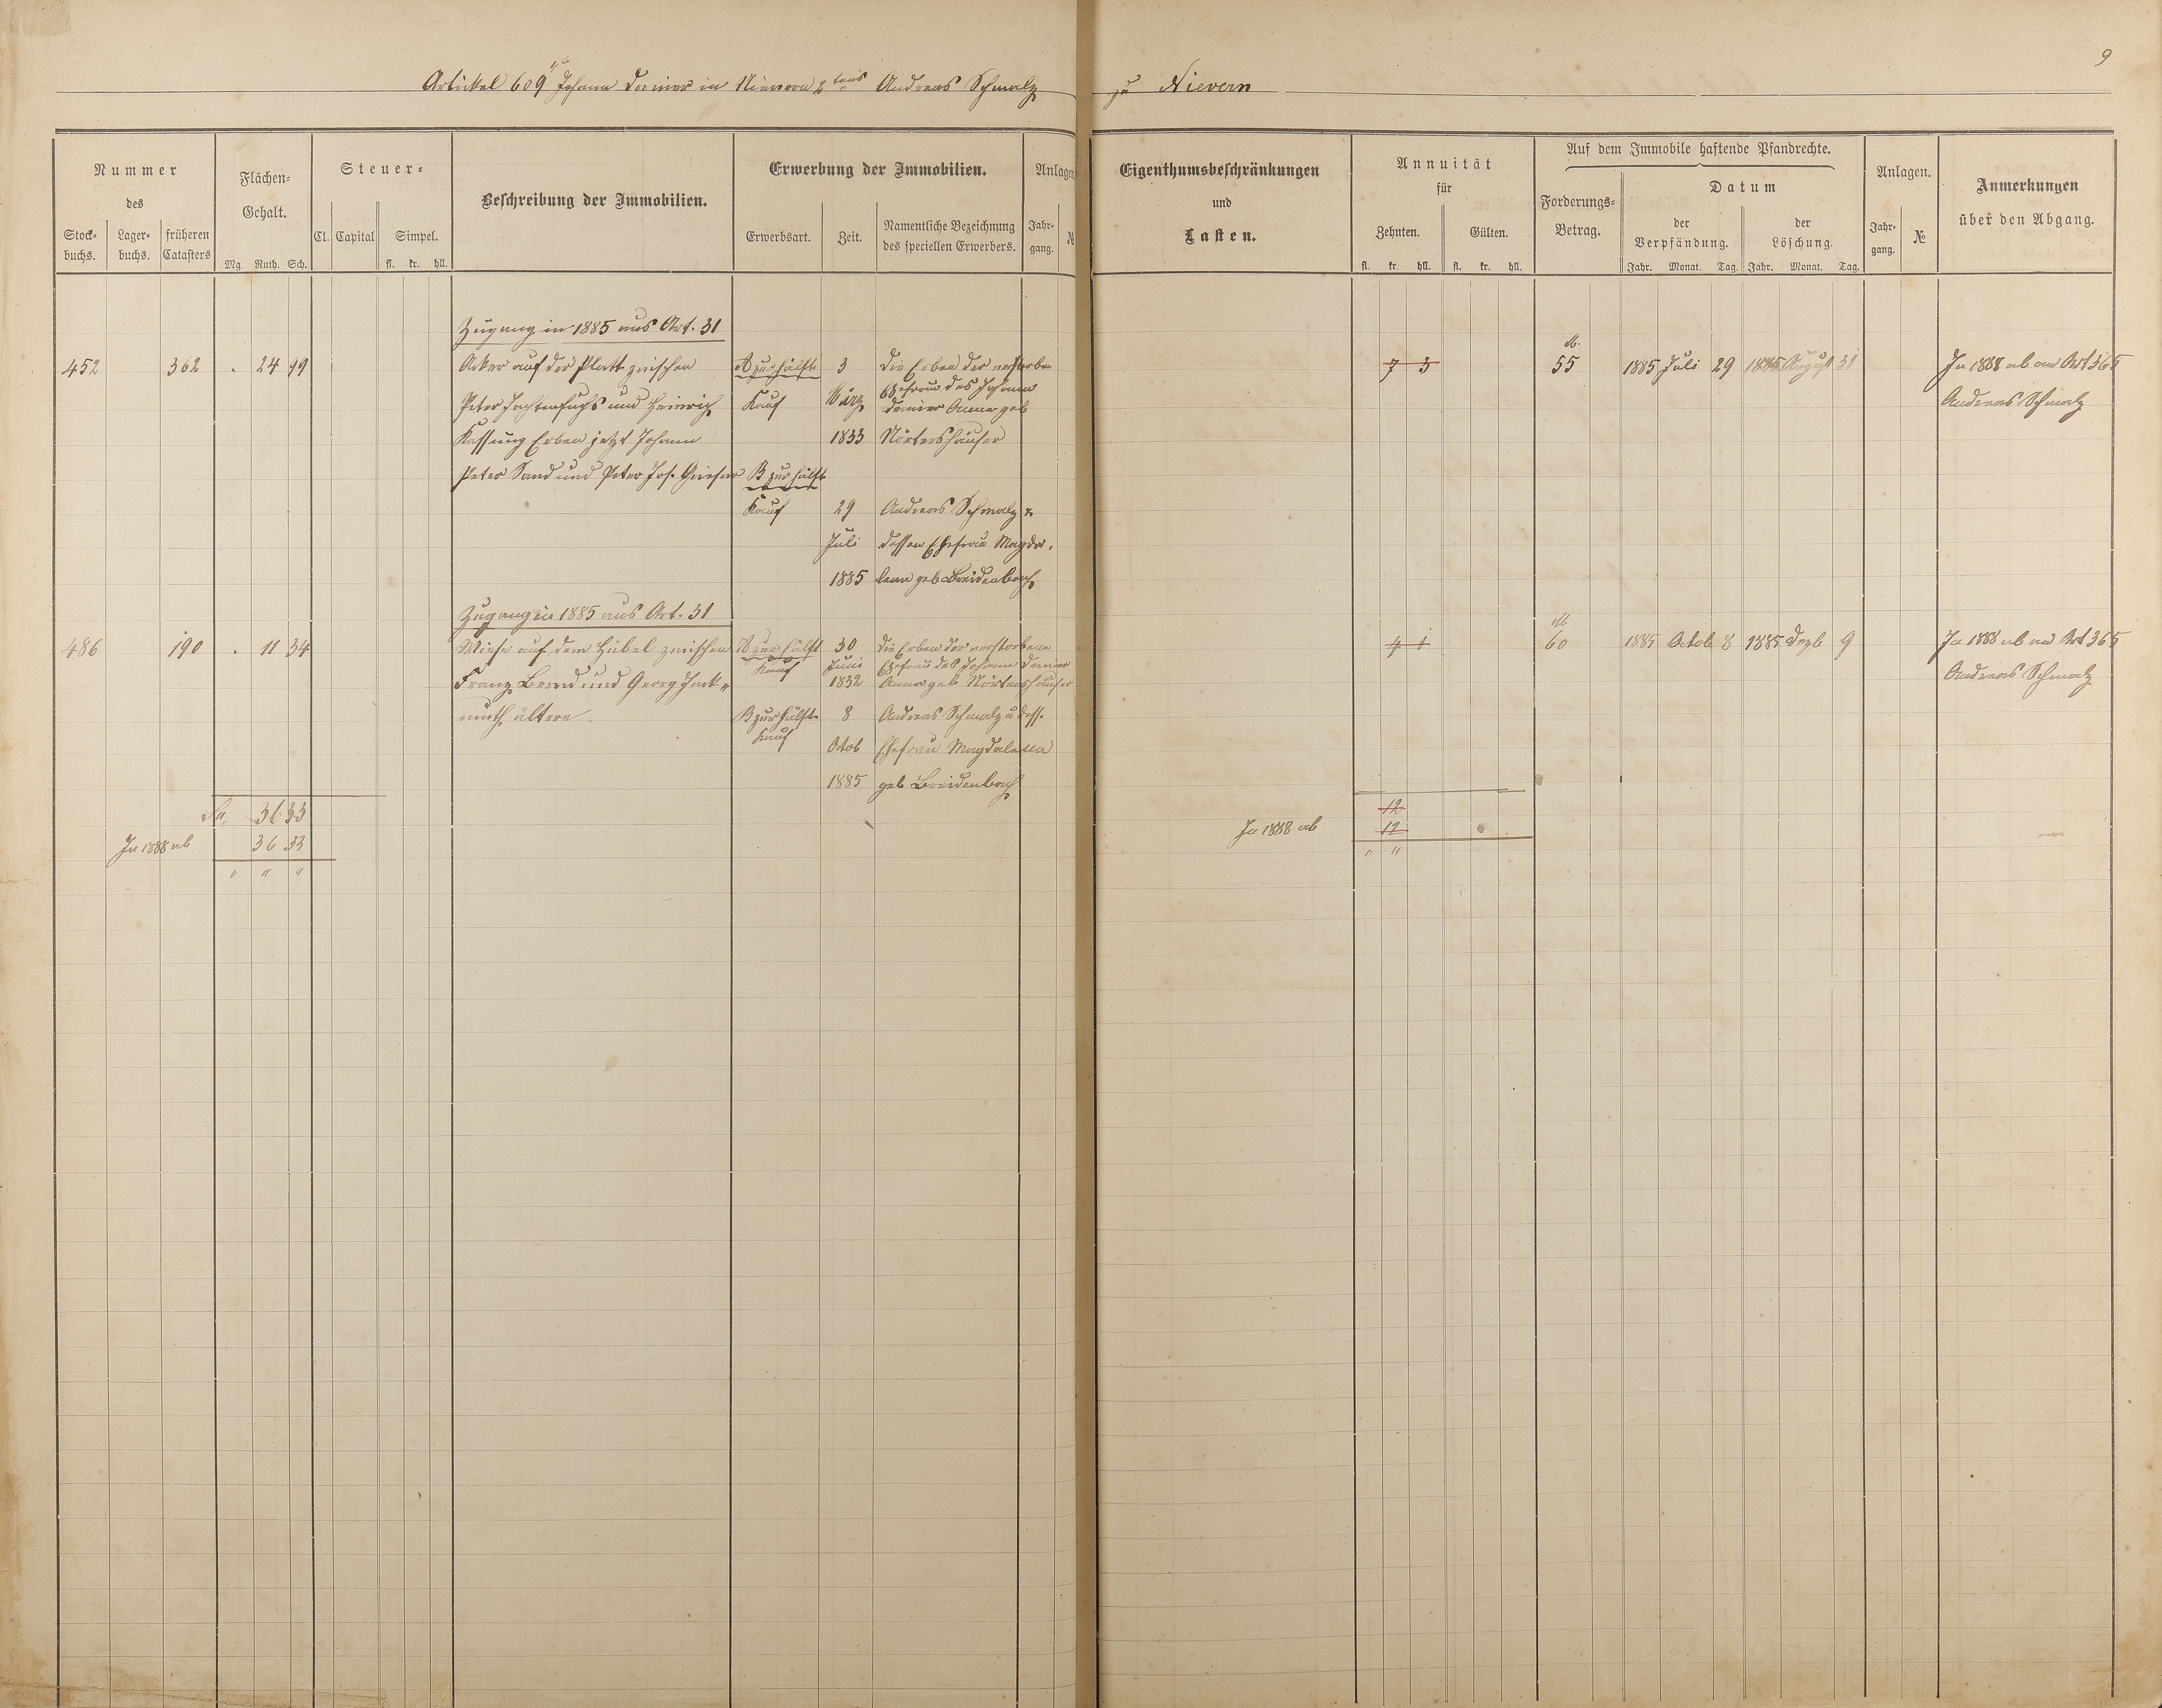 9
Artikel 609 Johann Daniér in Nievern 2tens Andreas Schmalz zu Nievern
Nummer des
Stock-buchs. Lager-buchs. früheren Catasters
Flächen-Gehalt.
Mg. Ruth. Sch.
Steuer-
Cl. Capital Simpel.
fl. kr. hll.
Beschreibung der Immobilien.
Erwerbung der Immobilien.
Erwerbsart. Zeit. Namentliche Bezeichnung des speciellen Erwerbers.
Anlagen
Jahr-gang. N
Eigenthumsbeschränkungen
und
Lasten.
Annuität
für
Zehnten. Gülten.
fl. kr. hll. fl. kr. hll.
Auf dem Immobile haftende Pfandrechte.
Forderungs-Betrag.
Datum
der Verpfändung. der Löschung.
Jahr. Monat. Tag. Jahr. Monat. Tag.
Anlagen.
Jahr-gang. №
Anmerkungen
über den Abgang.
Zugang in 1885 aus Art. 31
M.
452 362 . 24 99 Acker auf der Platt zwischen A zur Hälfte 3 Die Erben der verstorben 7 3 55 1885 Juli 29 1885 August 31 In 1888 ab an Art 365
Peter und Heinrich Kauf März Ehefrau des Johann Andreas Schmalz
Daniér Anna geb
Erben jetzt Johann 1833 Nörtershäuser
Peter Sand und Peter Jos. B zur Hälfte
Kauf 29 Andreas Schmalz &
Juli dessen Ehefrau Magda-
1885 lena geb Breidenbach
Zugang in 1885 aus Art. 31
M
486 190 . 11 34 Wiese auf dem Hübel zwischen A zur Hälft 30 Die Erben der verstorbene 4 1 60 1885 Octob 8 1885 Dezb 9 In 1888 ab an Art 365
Kauf Juni Ehefrau des Johann Daniér Andreas Schmalz
Franz Bernd und Georg 1832 Anna geb Nörtershäuser
muth ältere B zur Hälfte 8 Andreas Schmalz u dess.
Kauf Octob Ehefrau Magdalena
1885 geb Breidenbach
Sa. 36 33 12
In 1888 ab 36 33 In 1888 ab 12
" " " " "